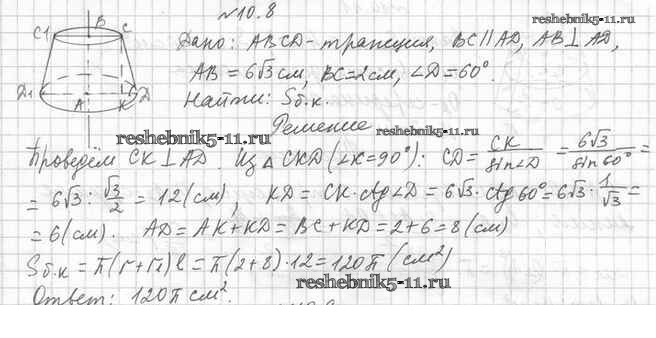 №10.8
reshebnik5-11.ru
B
C1 C
D1 A K D
Дано: ABCD - трапеция, BC || AD, AB ⊥ AD,
AB = 6√3 см, BC = 2 см, ∠D = 60°.
Найти: Sб.к.
reshebnik5-11.ru
Решение
reshebnik5-11.ru
Проведём CK ⊥ AD. Из △ CKD (∠K = 90°): CD = CK / sin∠D = 6√3 / sin 60° =
= 6√3 : √3/2 = 12 (см), KD = CK · ctg∠D = 6√3 · ctg 60° = 6√3 · 1/√3 =
= 6 (см). AD = AK + KD = BC + KD = 2 + 6 = 8 (см)
Sб.к = π(r + r1) l = π(2 + 8) · 12 = 120π (см²)
reshebnik5-11.ru
Ответ: 120π см².